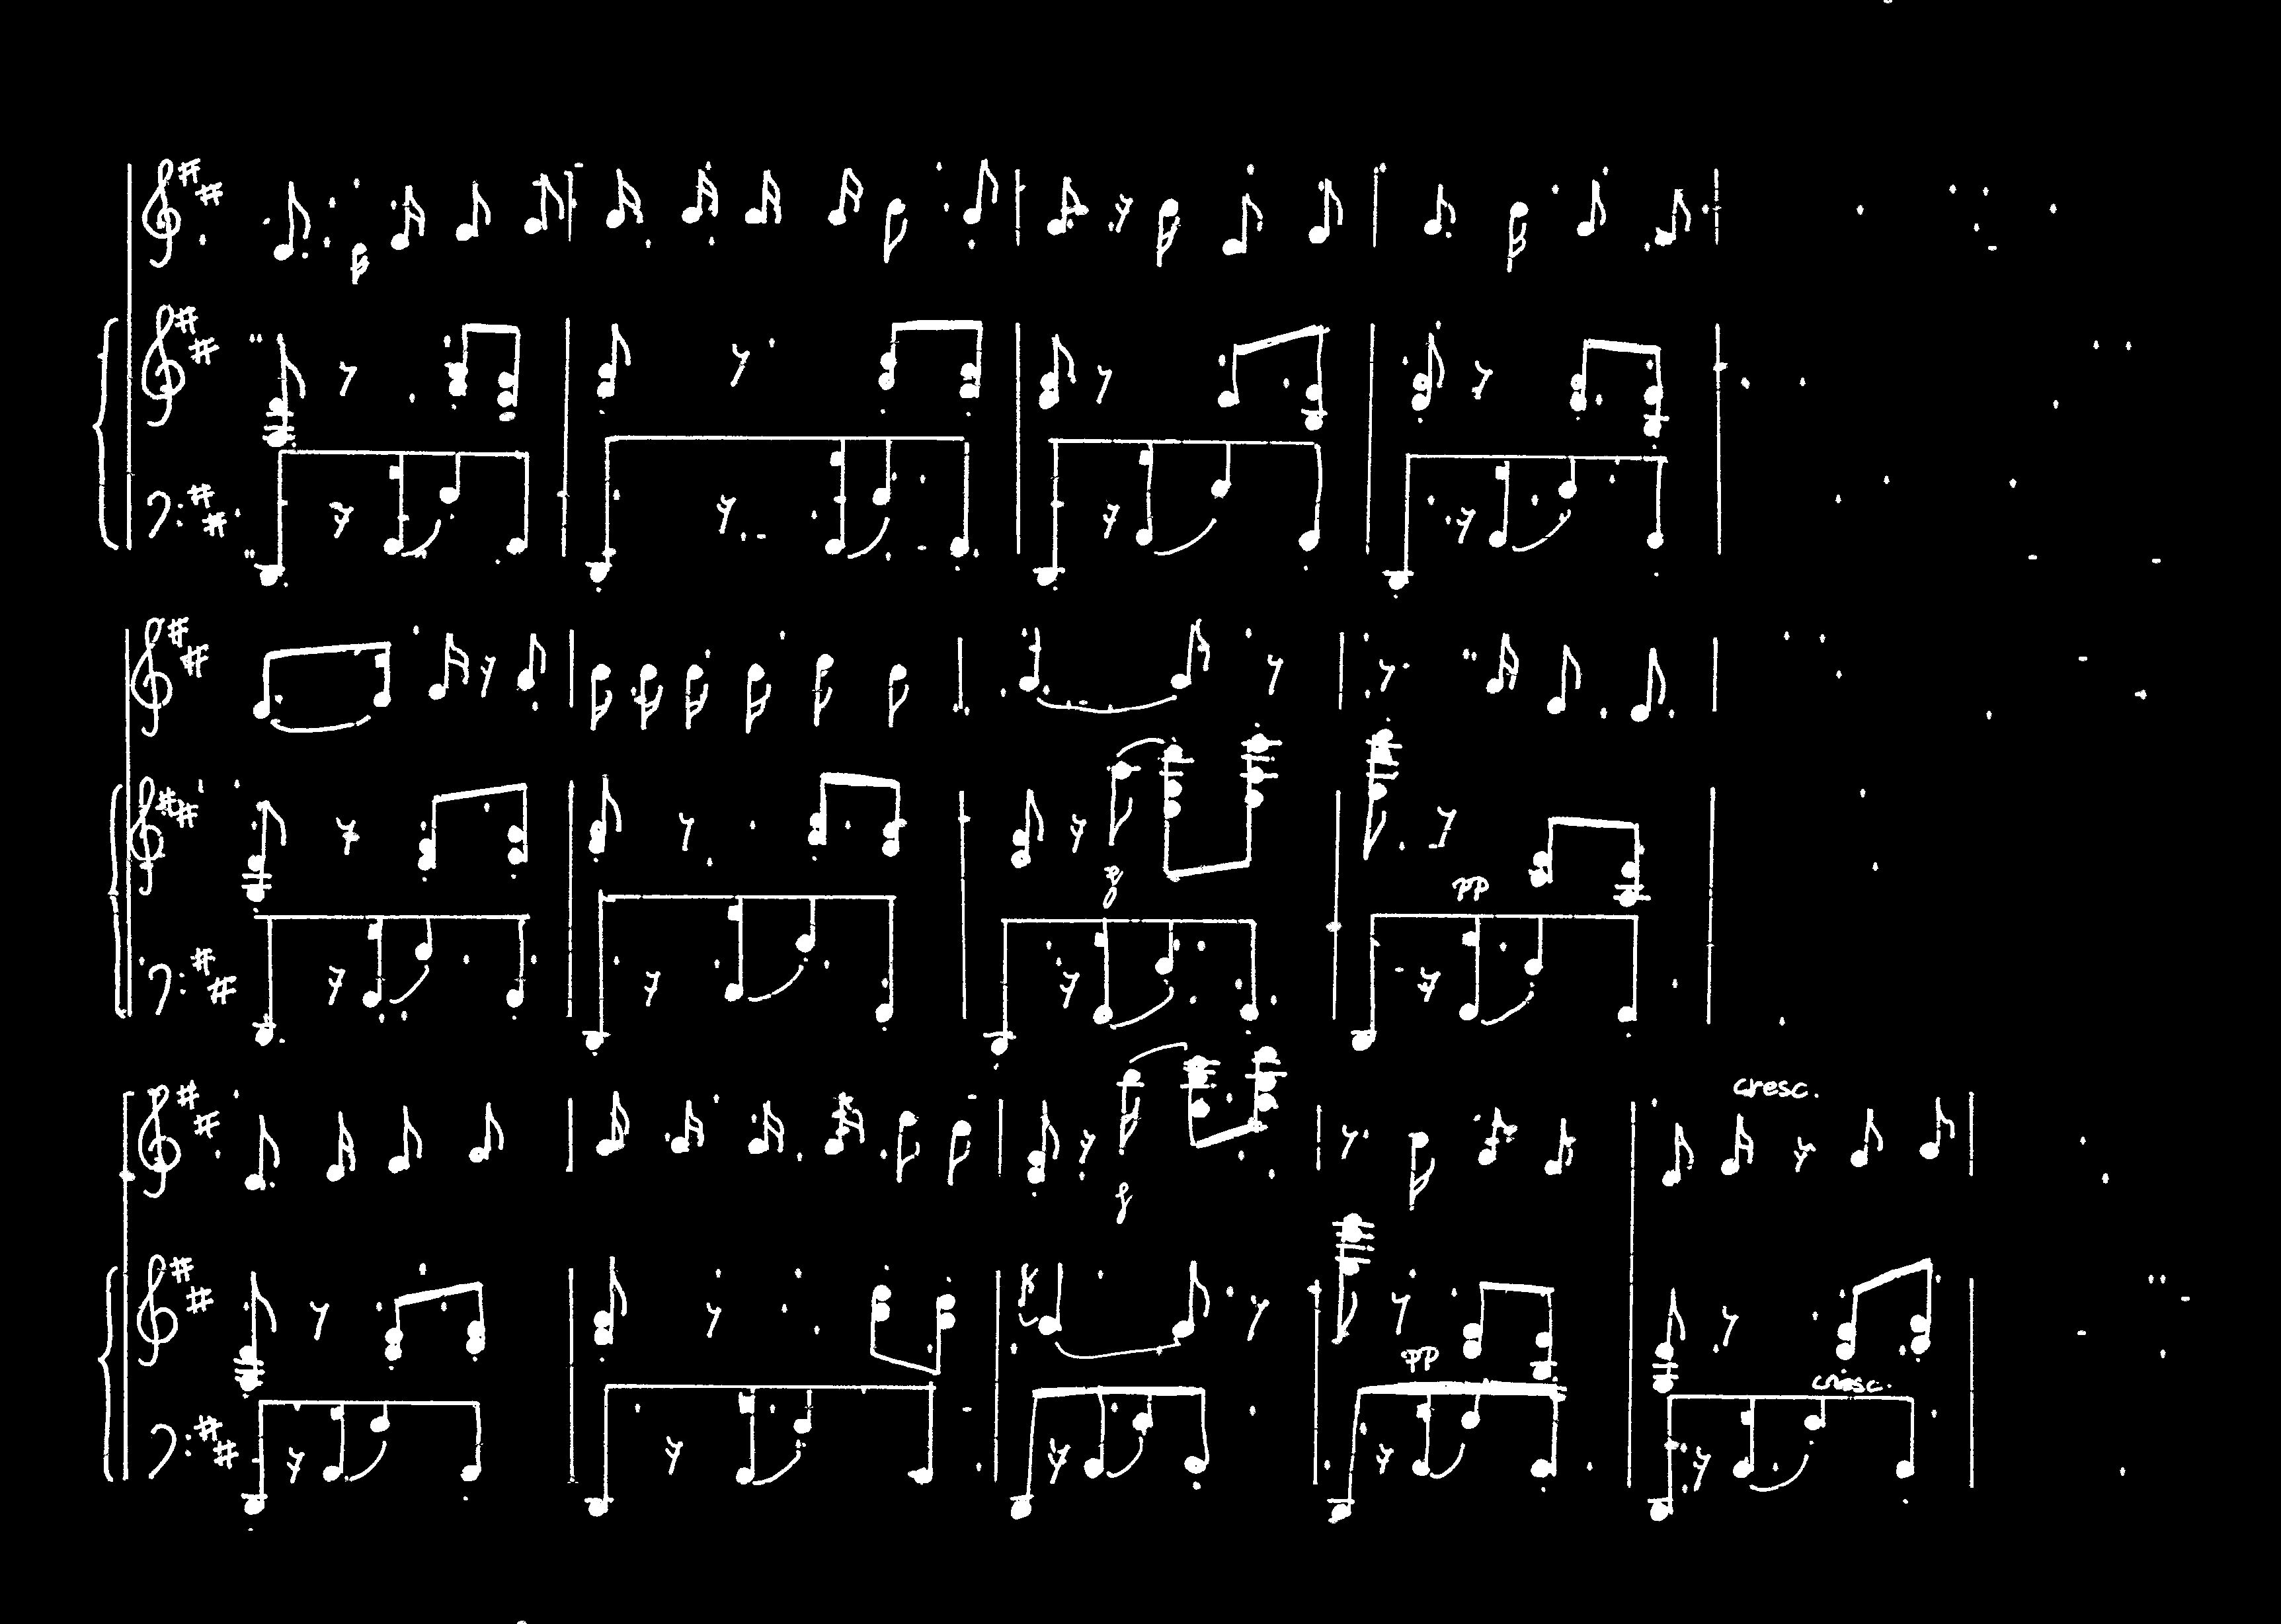 f
pp
cresc.
f
pp
cresc.